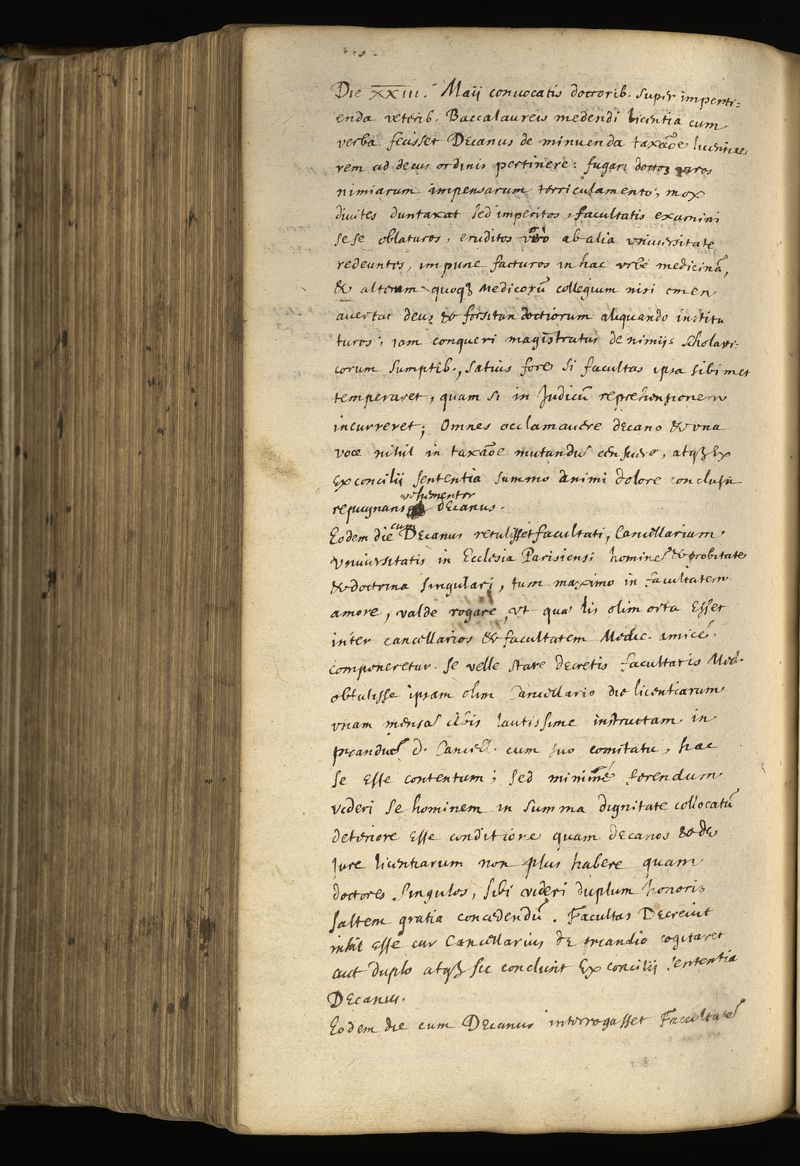 Die XXIII. Maij convocatis doctorib. super imperti-
enda veterib. Baccalaureis medendi licentia cum
verba fecisset Decanus de minuenda taxaõe licentiae
rem ad decus ordinis pertinere: fugari doctos viros
nimiarum impensarum terriculamento, mox
divites duntaxat sed imperitos, facultatis examini
sese oblaturos, eruditos vero ab alia vniversitate
redeuntes, impune facturos in hac vrbe medicinã,
& alterum quoqȝ Medicorũ collegium nisi omen
avertat deus & forsitan doctiorum aliquando institu
turos, iam conqueri magistratus de nimijs scholasti-
corum sumptib., satius fore si facultas ipsa sibimet
temperaret, quam si in Judicũ reprehensionem
incurreret; Omnes acclamavere decano & vna
voce nihil in taxaõe mutandũ censuere, atqȝ Ex
Exconcilij sententia summo animi dolore conclusit
repugnans vehementer Decanus.
Eodem die cum Decanus retulisset facultati, Cancellarium
Vniversitatis in Ecclesia Parisiensi hominẽ & probitate
& doctrina singulari, tum maximo in facultatem
amore, valde rogare, vt qua lis olim orta Esset
inter cancellarios & facultatem Medic. amicè
componeretur. se velle stare decretis facultatis Med.
obtulisse ipsam olim Cancellario die licentiarum
vnam mensã cibis lautissime instructam in
prandiũ d. Cancell. cum suo comitatu, hac
se Esse contentum; sed minimè ferendum
videri se hominem in summa dignitate collocatũ
deteriore Esse conditione quam decanos & de
Jure licentiarum non plus habere quam
doctores singulos, sibi videri duplum honoris
saltem gratia concedendũ. Facultas Decrevit
nihil esse cur Cancellarius de prandio cogitaret
aut duplo atqȝ sic conclusit Ex concilij sententia
Decanus.
Eodem die cum Decanus interrogasset Facultatẽ